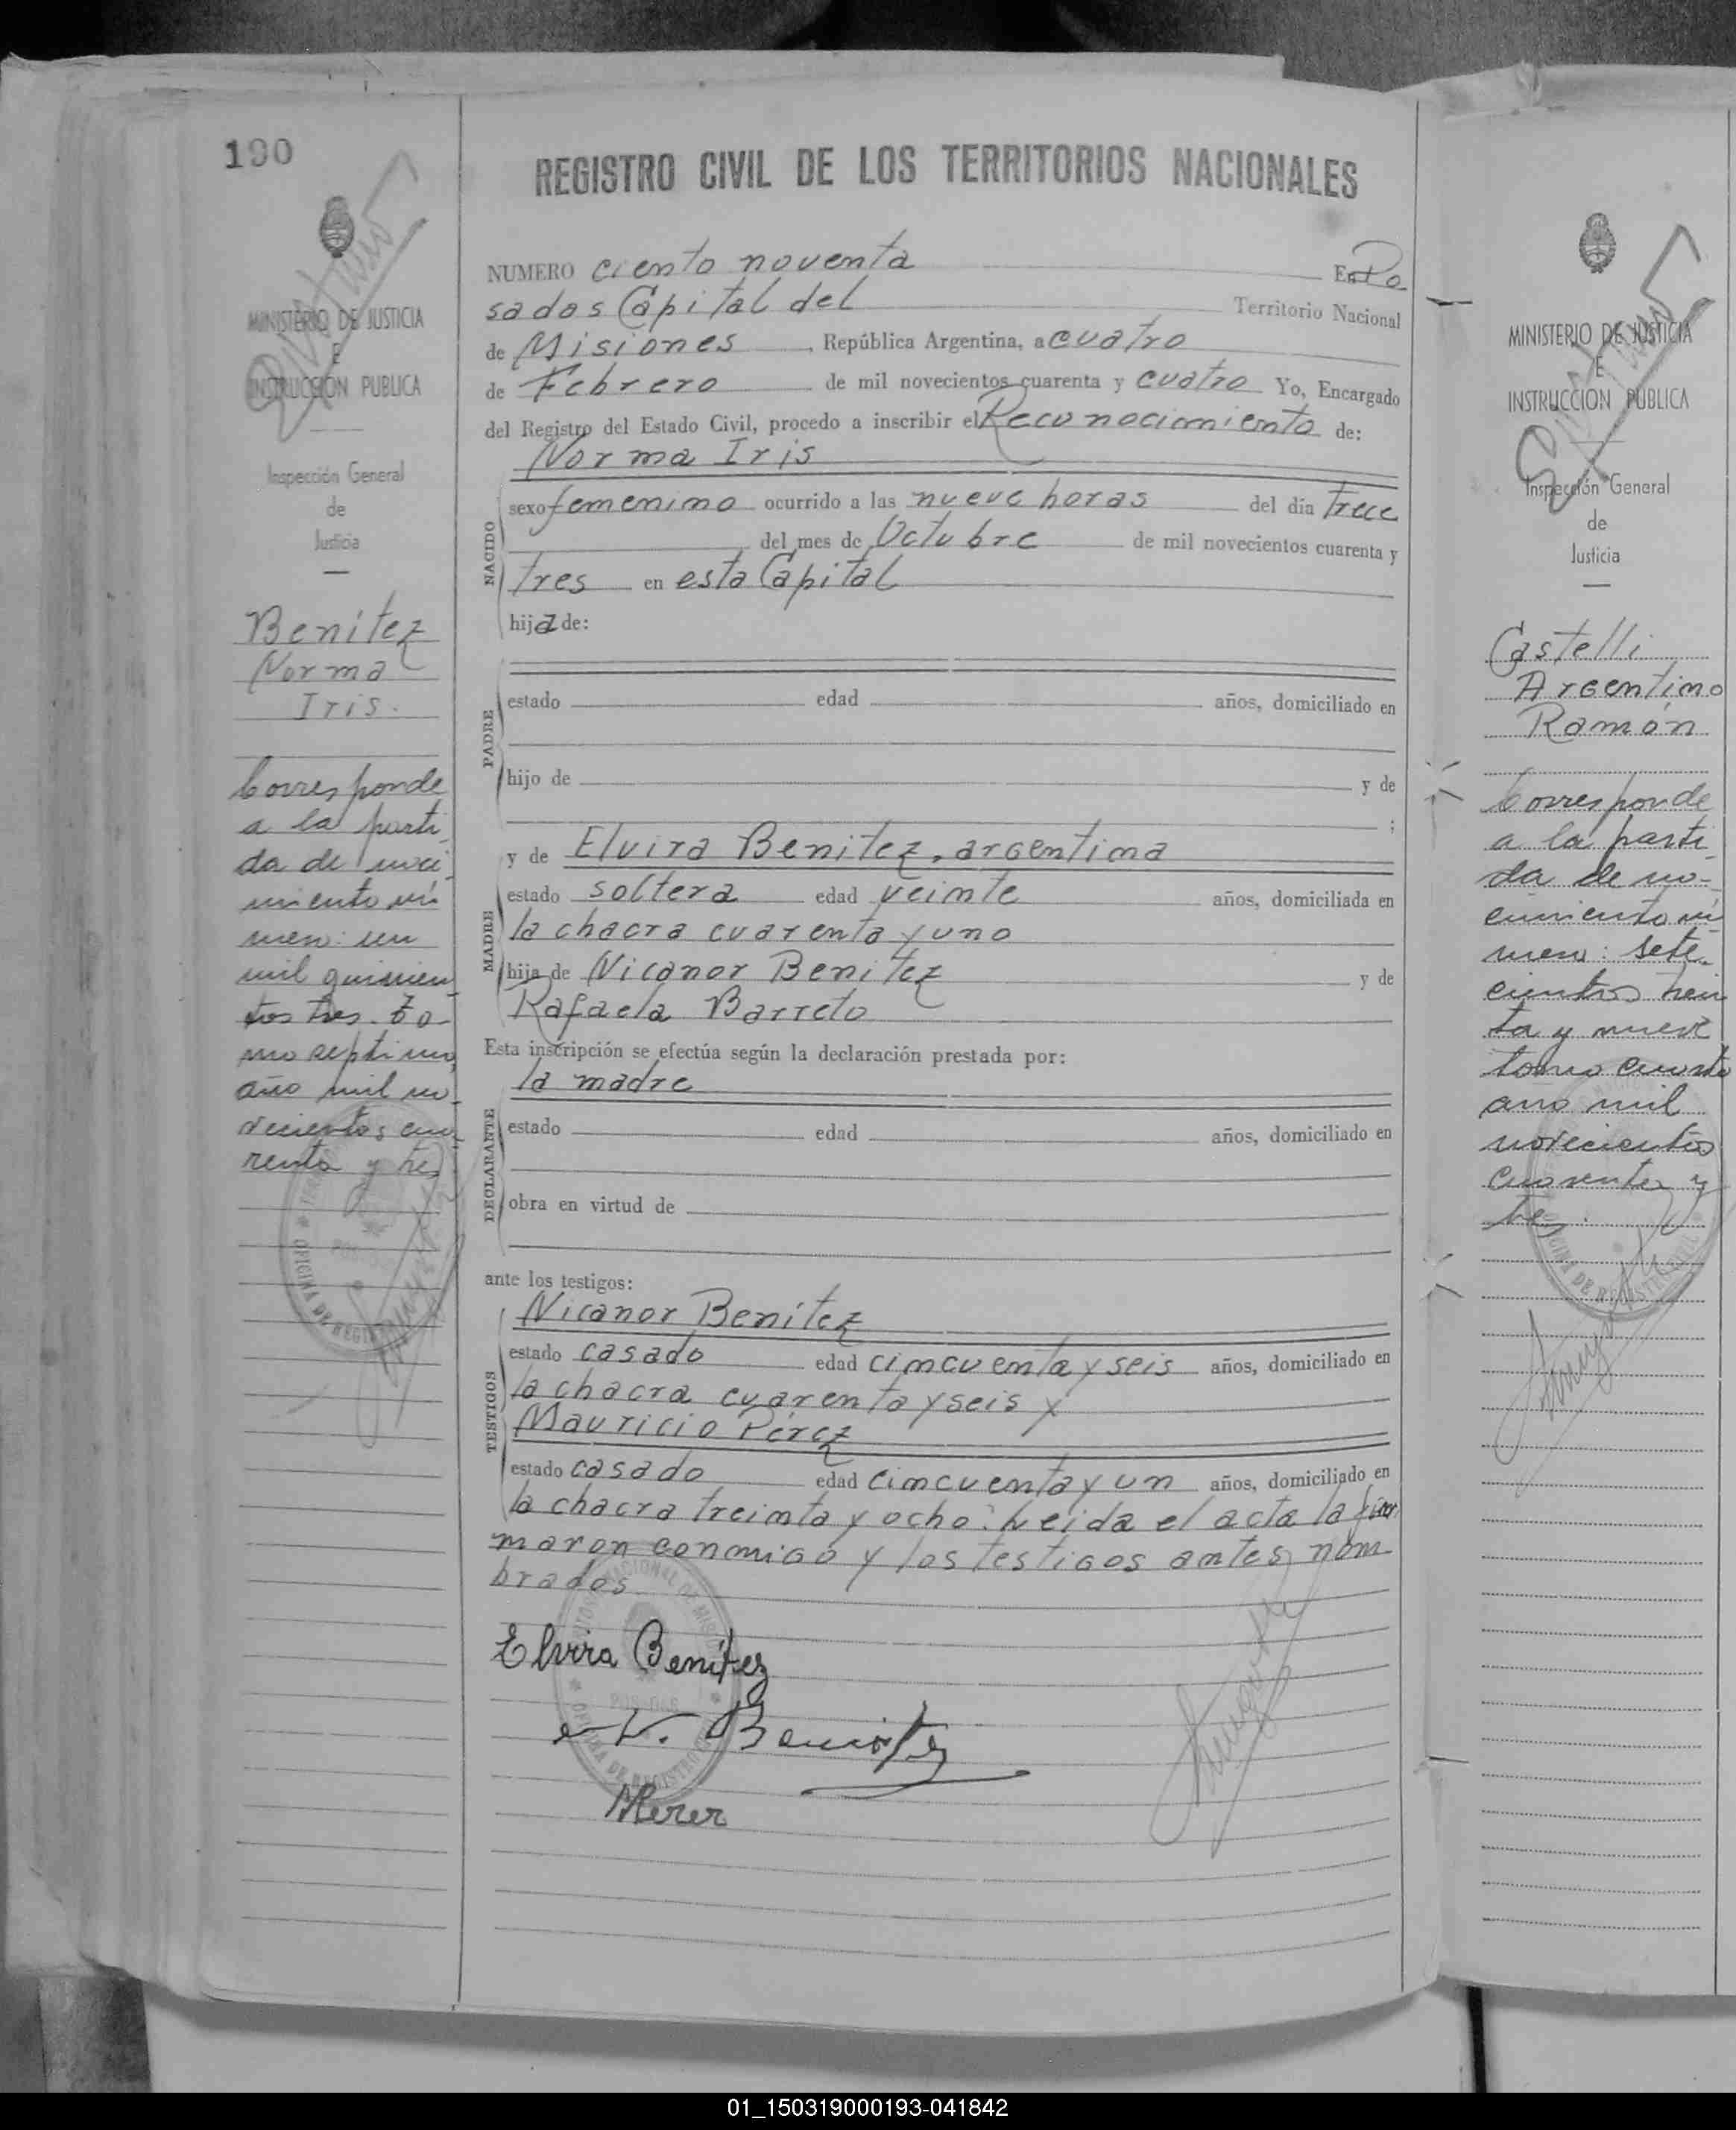 190
MINISTERIO DE JUSTICIA
E
INSTRUCCION PUBLICA
Inspección General
de
Justicia
Benítez
Norma
Iris.
Corresponde
a la parti
da de naci
miento nú
mero: un
mil quinien
tos tres. To-
mo septimo,
año mil no
vecientos cua
renta y tres
REGISTRO CIVIL DE LOS TERRITORIOS NACIONALES
NUMERO ciento noventa En Po
sadas Capital del Territorio Nacional
de Misiones, República Argentina, a cuatro
de Febrero de mil novecientos cuarenta y cuatro Yo, Encargado
del Registro del Estado Civil, procedo a inscribir el Reconocimiento de:
Norma Iris
NACIDO
sexo femenino ocurrido a las nueve horas del día trece
del mes de Octubre de mil novecientos cuarenta y
tres en esta Capital
hija de:
PADRE
estado edad años, domiciliado en
hijo de y de
;
y de Elvira Benitez, argentina
MADRE
estado soltera edad veinte años, domiciliada en
la chacra cuarenta y uno
hija de Nicanor Benitez y de
Rafaela Barreto
Esta inscripción se efectúa según la declaración prestada por:
la madre
DECLARANTE
estado edad años, domiciliado en
obra en virtud de
ante los testigos:
Nicanor Benítez
TESTIGOS
estado casado edad cincuenta y seis años, domiciliado en
la chacra cuarenta y seis y
Mauricio Pérez
estado casado edad cincuenta y un años, domiciliado en
la chacra treinta y ocho: Leida el acta la fir
maron conmigo y los testigos antes nom
brados
Elvira Benítez
N. Benitez
MPerez
MINISTERIO DE JUSTICIA
E
INSTRUCCION PUBLICA
Inspección General
de
Justicia
Castelli
Argentino
Ramón
Corresponde
a la parti
da de na-
cimiento nú
mero: sete-
cientos trein
ta y nueve
tomo cuarto
año mil
novecientos
cuarenta y
tres.
01_150319000193-041842